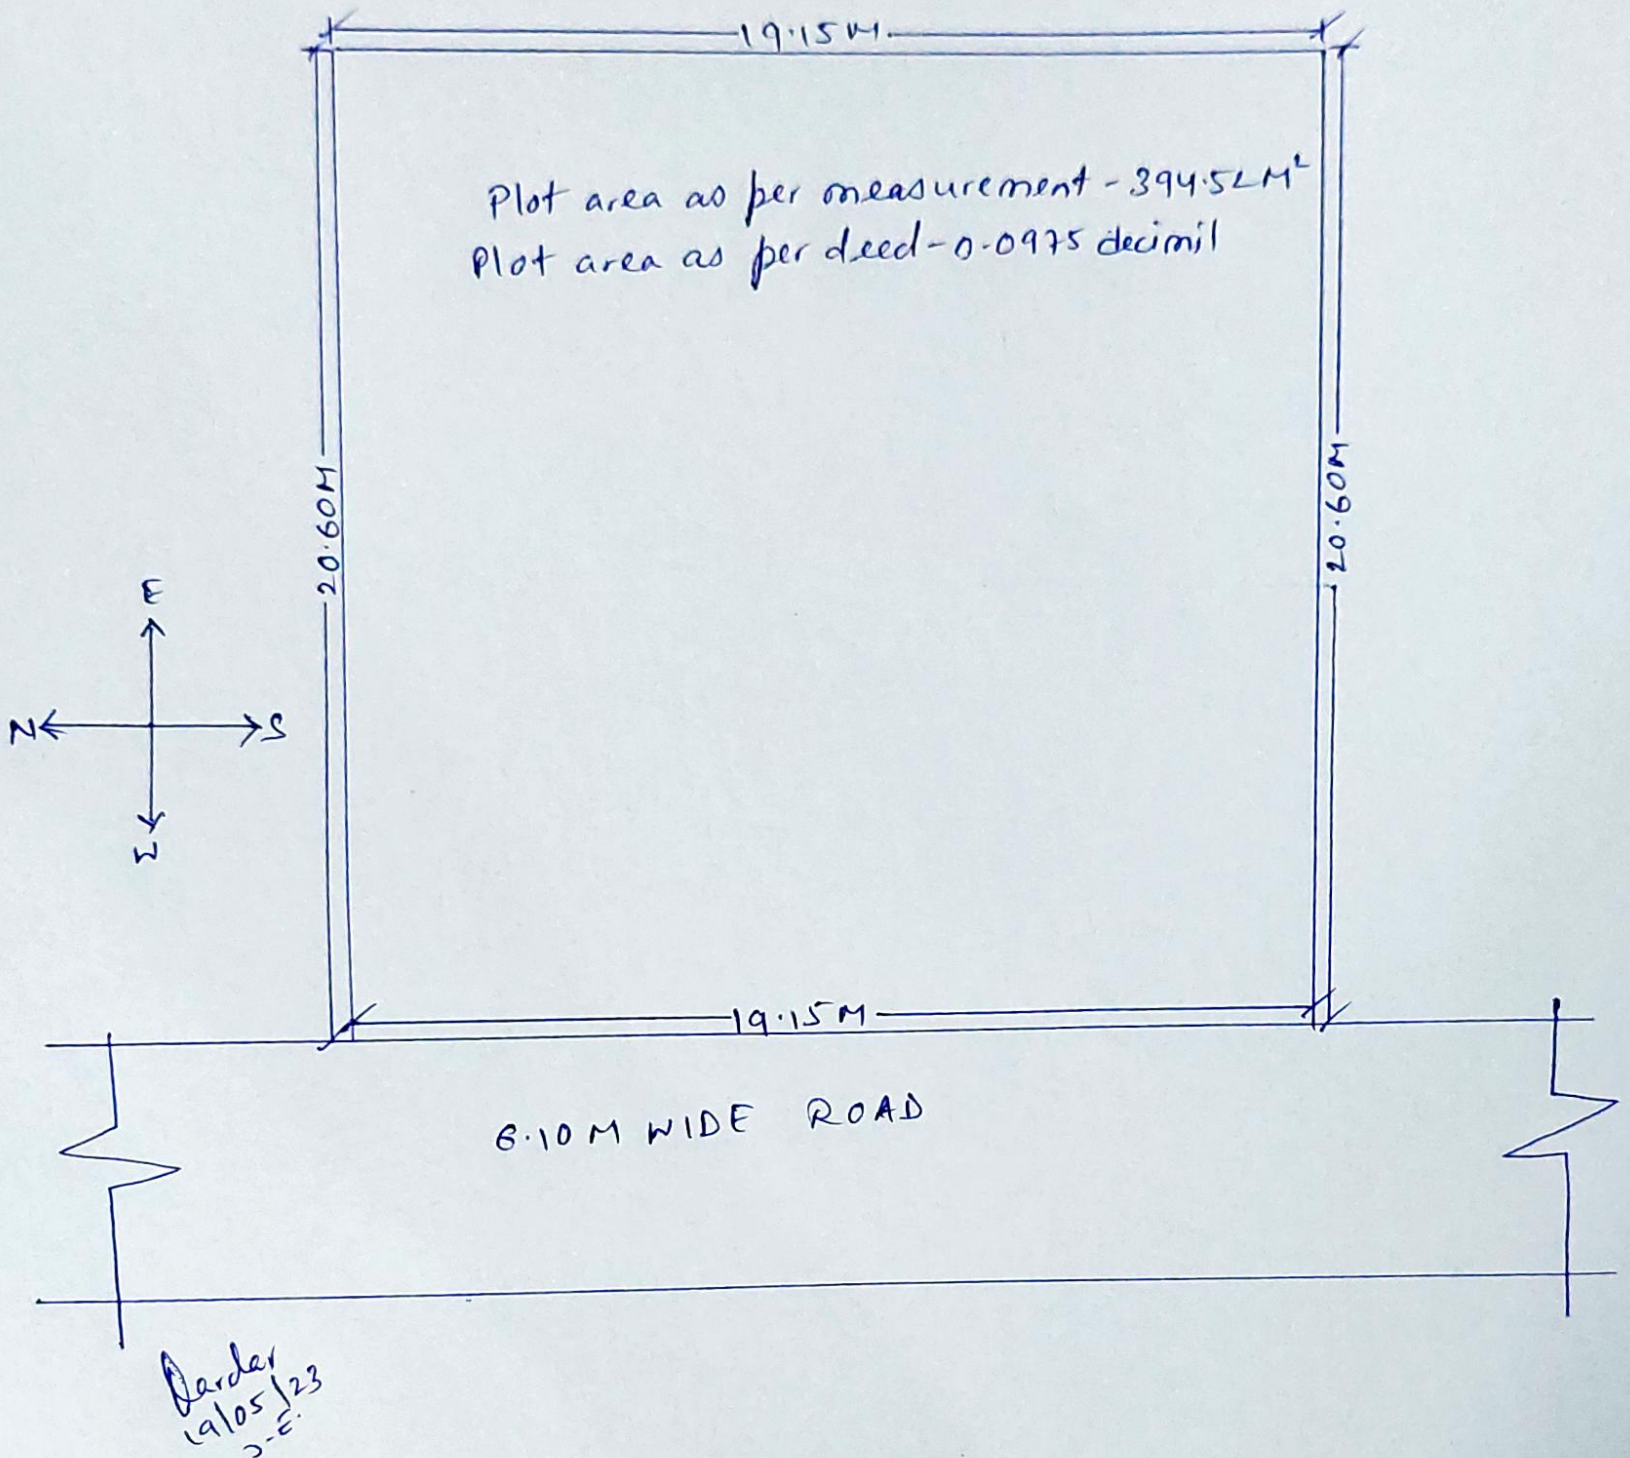 19.15M.
Plot area as per measurement - 394.52 M²
Plot area as per deed - 0.0975 decimil
20.60M
20.60M
E
N S
W
19.15M
6.10M WIDE ROAD
19/05/23
J.E.